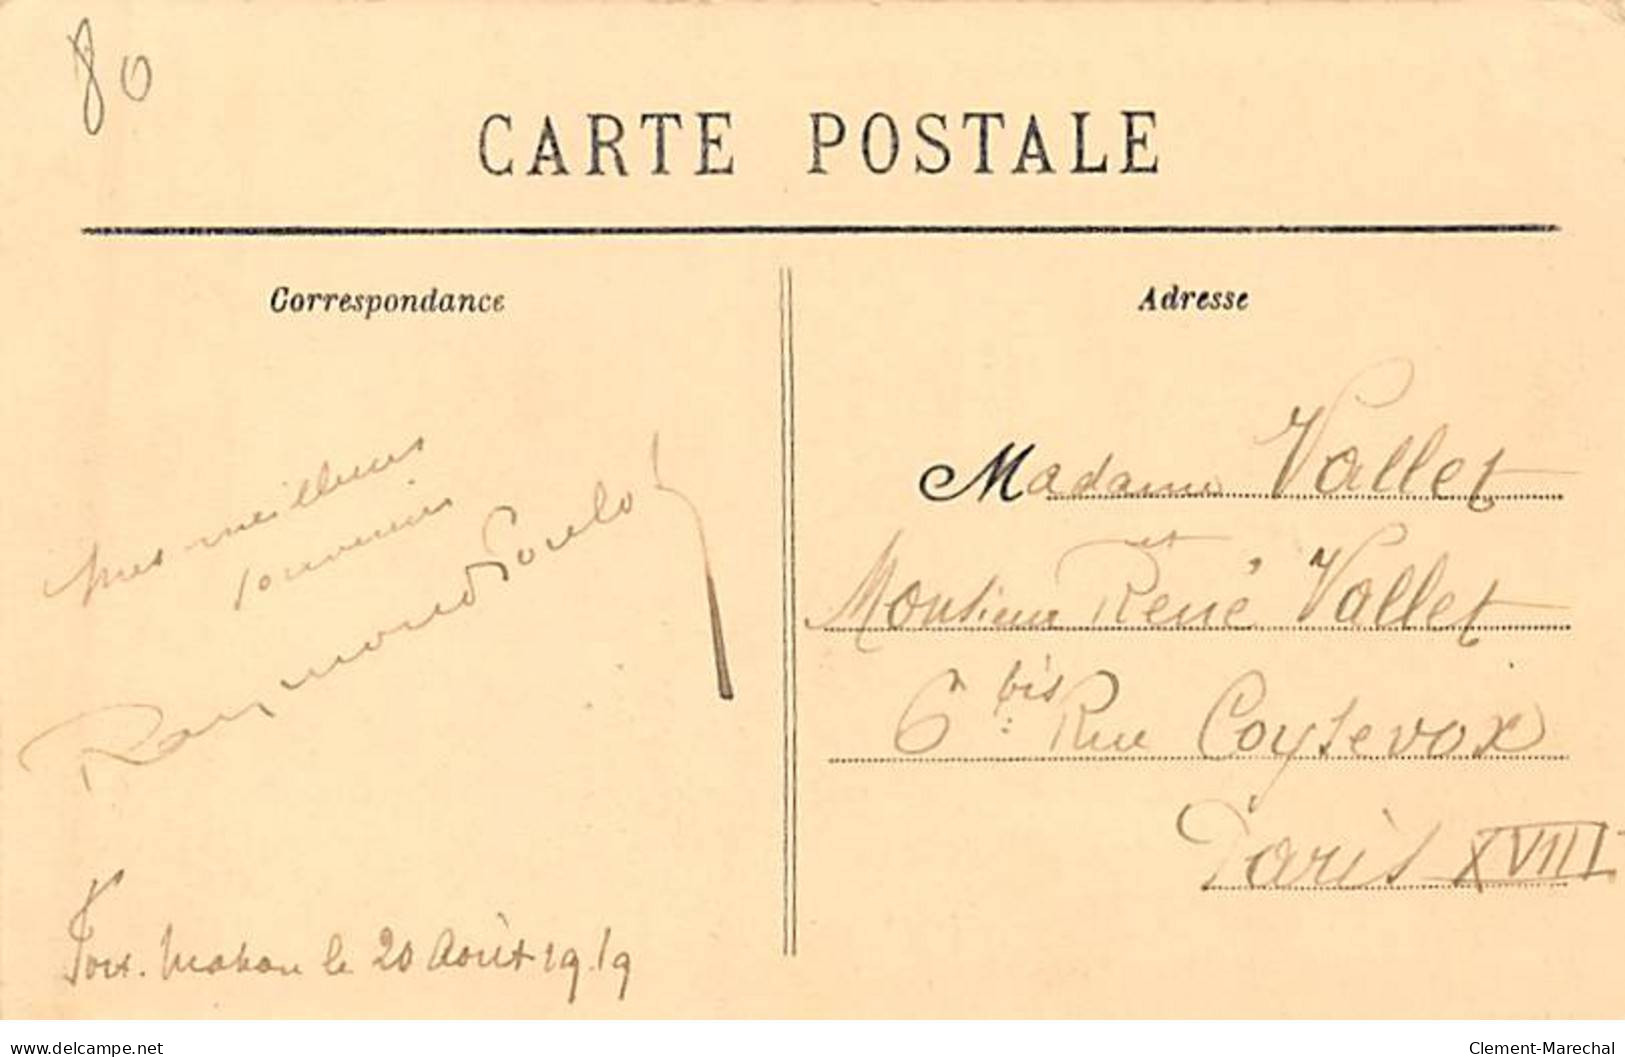 80
CARTE POSTALE
Correspondance
Adresse
Mes meilleurs
souvenirs
Raymond
Port-Mahon le 20 Août 1919
Madame Vallet
et
Monsieur René Vallet
6 bis Rue Coysevox
Paris XVIII
www.delcampe.net
Clement-Marechal